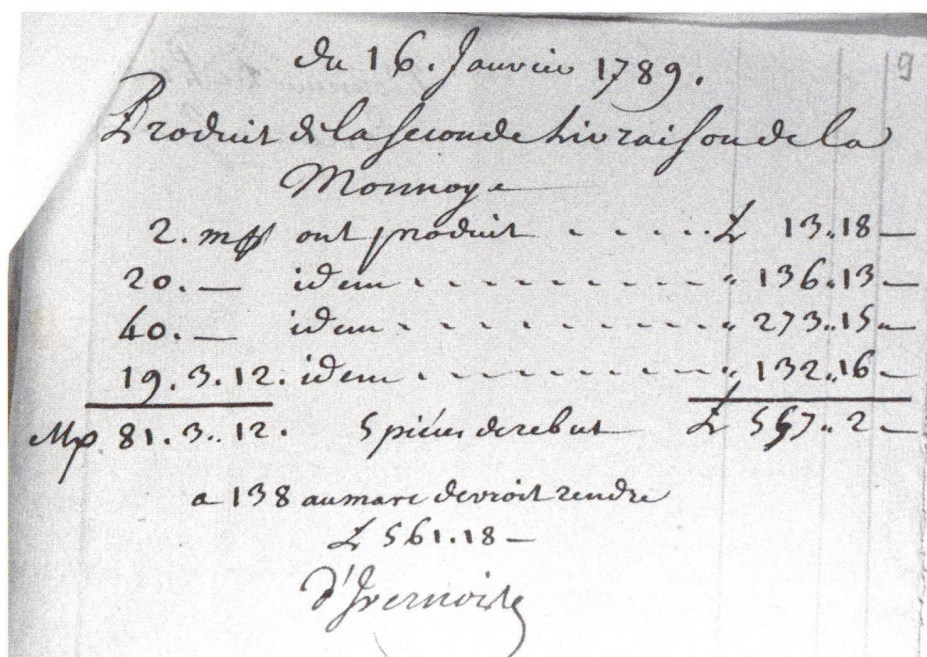 9
du 16. Janvier 1789.
Produit de la seconde Livraison de la
Monnoye
2. mf ont produit - - - - . £ 13.. 18 —
20. — idem - - - - - - - - " 136.. 13 —
40. — idem - - - - - - - - " 273.. 15 —
19. 3. 12. idem - - - - - - - " 132.. 16 —
Mp 81. 3.. 12. 5 pièces de rebut £ 557.. 2 —
a 138 au marc devroit rendre
£ 561. 18 —
d'Ivernois